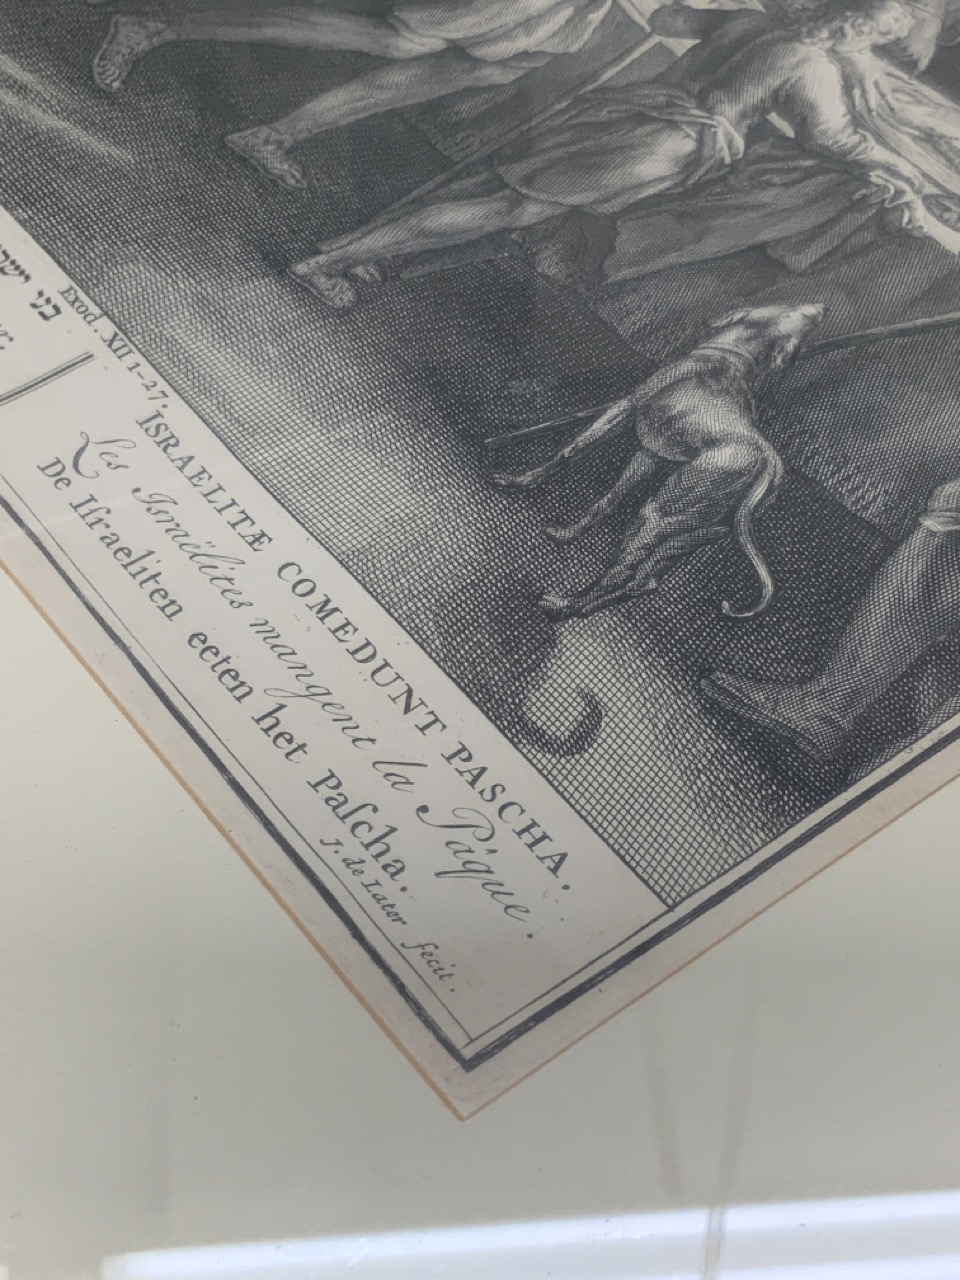 בני ישר
Exod. XII 1-27.
ISRAELITÆ COMEDUNT PASCHA.
Les Israëlites mangent la Pâque.
De Iſraeliten eeten het Paſcha.
J. de Later fecit.